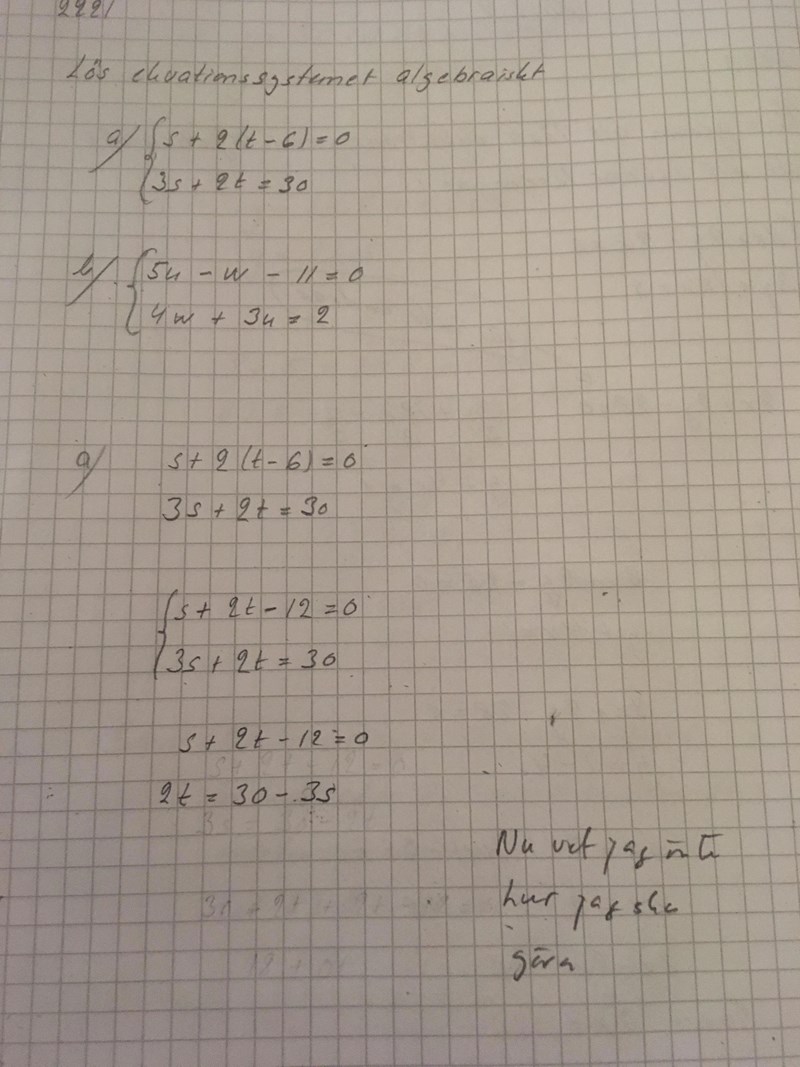 2221
Lös ekvationssystemet algebraiskt
a) { s + 2(t-6) = 0
3s + 2t = 30
b) { 5u - w - 11 = 0
4w + 3u = 2
a) s + 2(t-6) = 0
3s + 2t = 30
{ s + 2t - 12 = 0
3s + 2t = 30
s + 2t - 12 = 0
2t = 30 - 3s
Nu vet jag inte
hur jag ska
göra